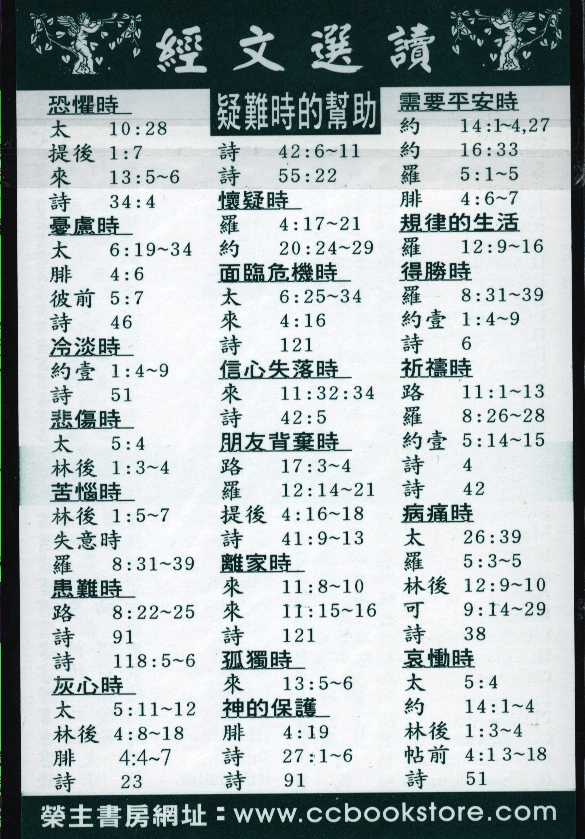 經文選讀
疑難時的幫助
恐懼時
太 10:28
提後 1:7
來 13:5~6
詩 34:4
憂慮時
太 6:19~34
腓 4:6
彼前 5:7
詩 46
冷淡時
約壹 1:4~9
詩 51
悲傷時
太 5:4
林後 1:3~4
苦惱時
林後 1:5~7
失意時
羅 8:31~39
患難時
路 8:22~25
詩 91
詩 118:5~6
灰心時
太 5:11~12
林後 4:8~18
腓 4:4~7
詩 23
詩 42:6~11
詩 55:22
懷疑時
羅 4:17~21
約 20:24~29
面臨危機時
太 6:25~34
來 4:16
詩 121
信心失落時
來 11:32:34
詩 42:5
朋友背棄時
路 17:3~4
羅 12:14~21
提後 4:16~18
詩 41:9~13
離家時
來 11:8~10
來 11:15~16
詩 121
孤獨時
來 13:5~6
神的保護
腓 4:19
詩 27:1~6
詩 91
需要平安時
約 14:1~4,27
約 16:33
羅 5:1~5
腓 4:6~7
規律的生活
羅 12:9~16
得勝時
羅 8:31~39
約壹 1:4~9
詩 6
祈禱時
路 11:1~13
羅 8:26~28
約壹 5:14~15
詩 4
詩 42
病痛時
太 26:39
羅 5:3~5
林後 12:9~10
可 9:14~29
詩 38
哀慟時
太 5:4
約 14:1~4
林後 1:3~4
帖前 4:13~18
詩 51
榮主書房網址：www.ccbookstore.com